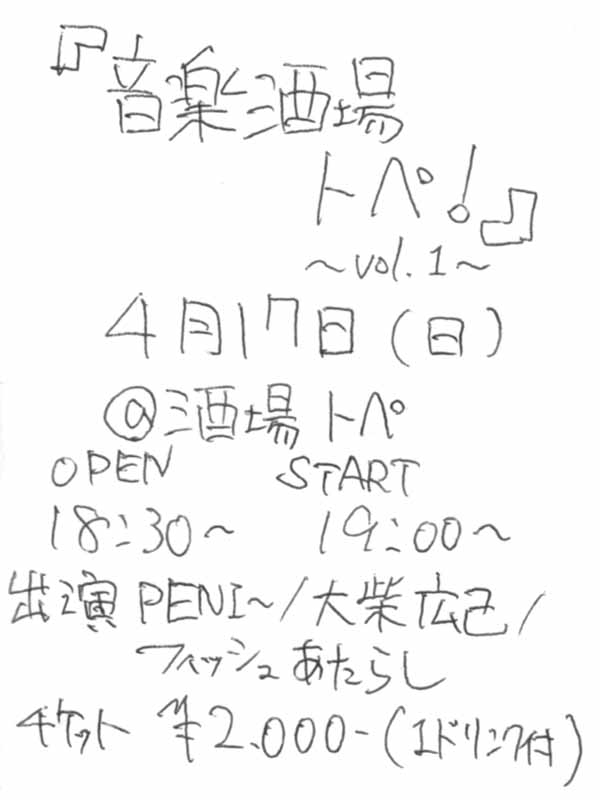 『音楽酒場
トペ!』
〜vol.1〜
4月17日(日)
@酒場トペ
OPEN START
18:30〜 19:00〜
出演 PENI〜/大柴広己/
フィッシュあたらし
チケット ¥2.000-(1ドリンク付)